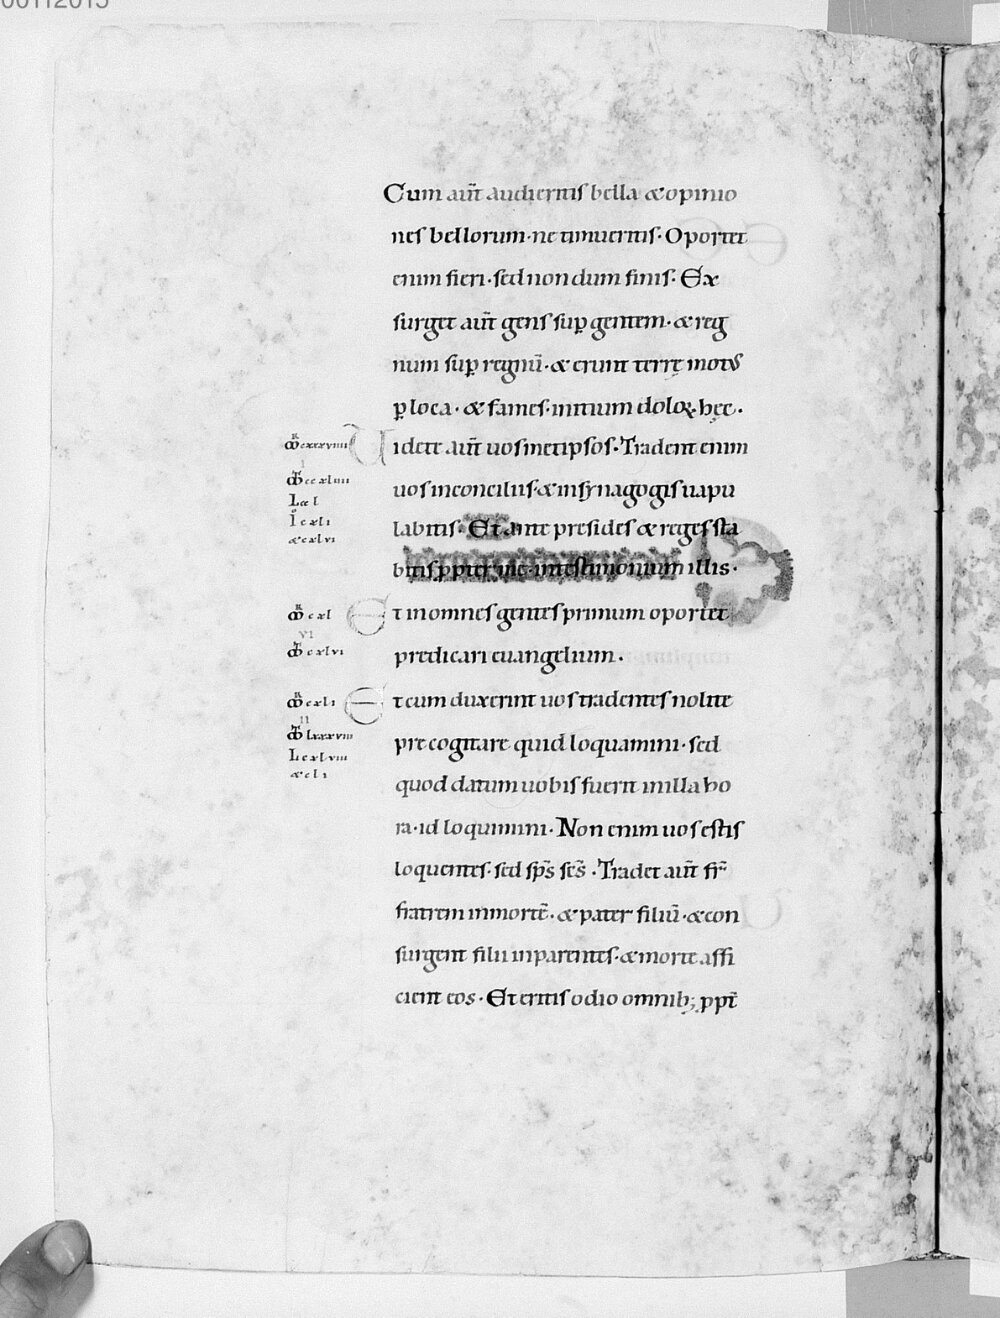 00112015
Cum aut̅ audieritis bella & opinio
nes bellorum · ne timueritis · Oportet
enim fieri · sed non dum finis · Ex
surget aut̅ gens suꝑ gentem · & reg
num suꝑ regnū · & erunt terrę motus
ꝑ loca · & fames · initium doloꝝ hęc ·
Uidete aut̅ uosmetipsos · Tradent enim
uos inconciliis · & insynagogis uapu
labitis · Et ante presides & reges sta
bitis ꝓpter me · intestimonium illis ·
Et inomnes gentes primum oportet
predicari euangelium ·
Et cum duxerint uos tradentes nolite
precogitare quid loquamini · sed
quod datum uobis fuerit inilla ho
ra · id loquimini · Non enim uos estis
loquentes · sed sp̅s sc̅s · Tradet aut̅ fr̅
fratrem inmortē · & pater filiū · & con
surgent filii inparentes · & morte affi
cient eos · Et eritis odio omnib; ꝓpt̅